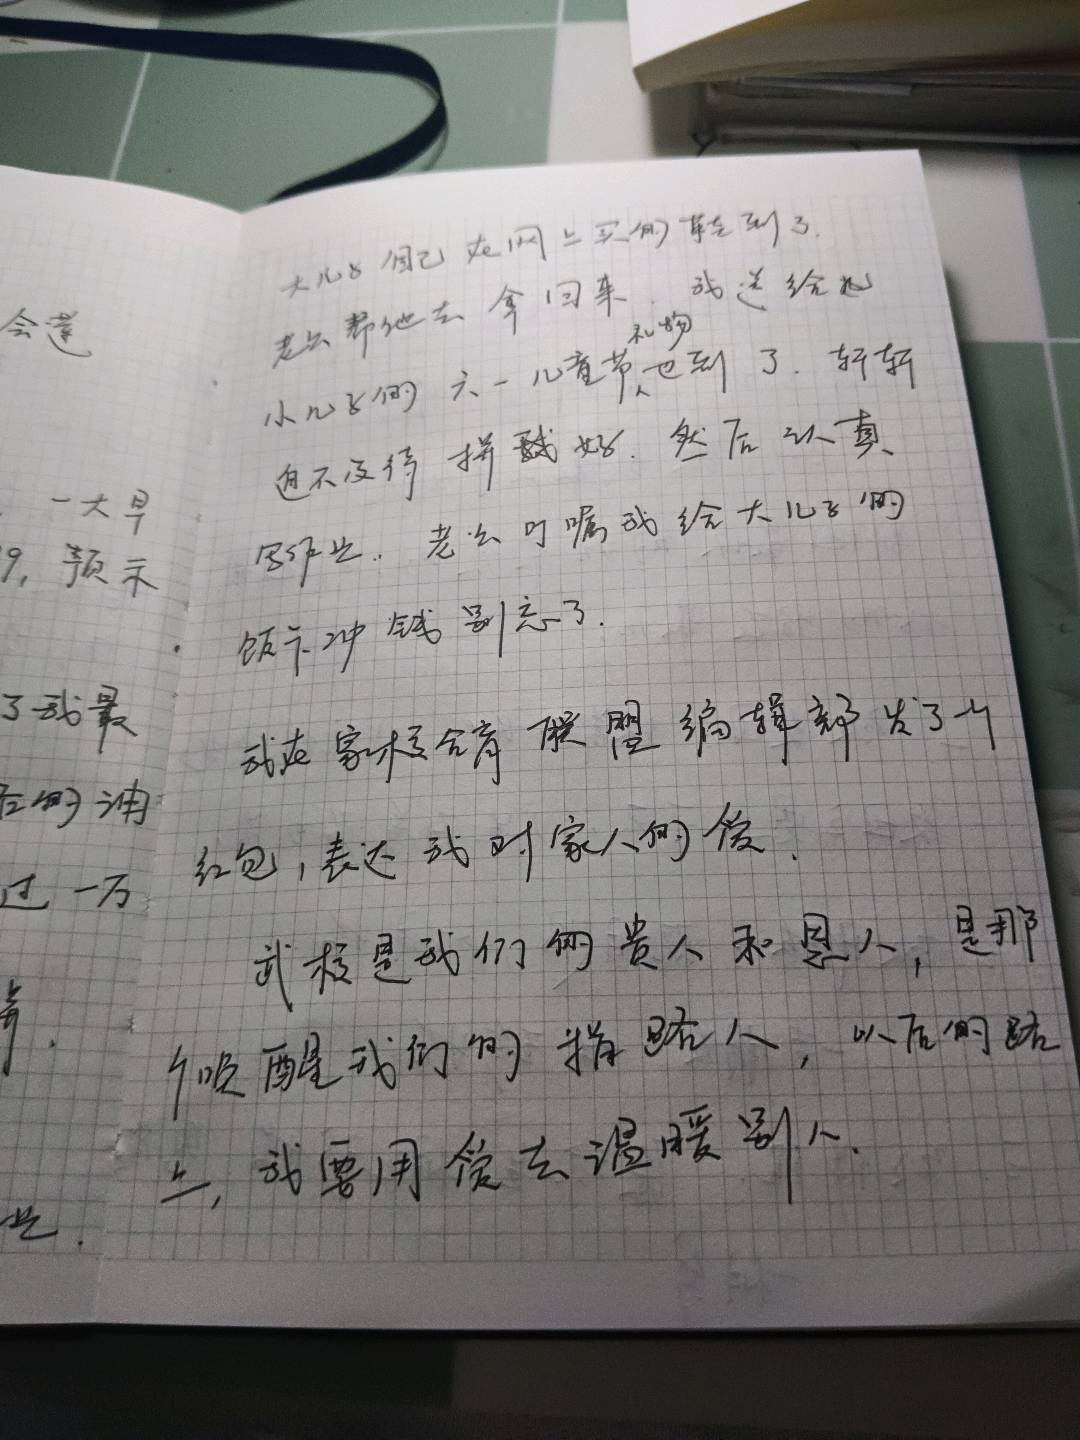 会蓬
一大早
9, 预示
了我最
后的消
过一万
弃.
业.
大儿子自己在网上买的鞋到了.
老公帮他去拿回来. 我送给
小儿子的六一儿童节礼物也到了. 轩轩
迫不及待拼好. 然后认真
写作业. 老公叮嘱我给大儿子的
饭卡冲钱别忘了.
我在家校合育联盟编辑部发了个
红包, 表达我对家人的爱.
武校是我们的贵人和恩人, 是那
个唤醒我们的指路人, 以后的路
上, 我要用爱去温暖别人.